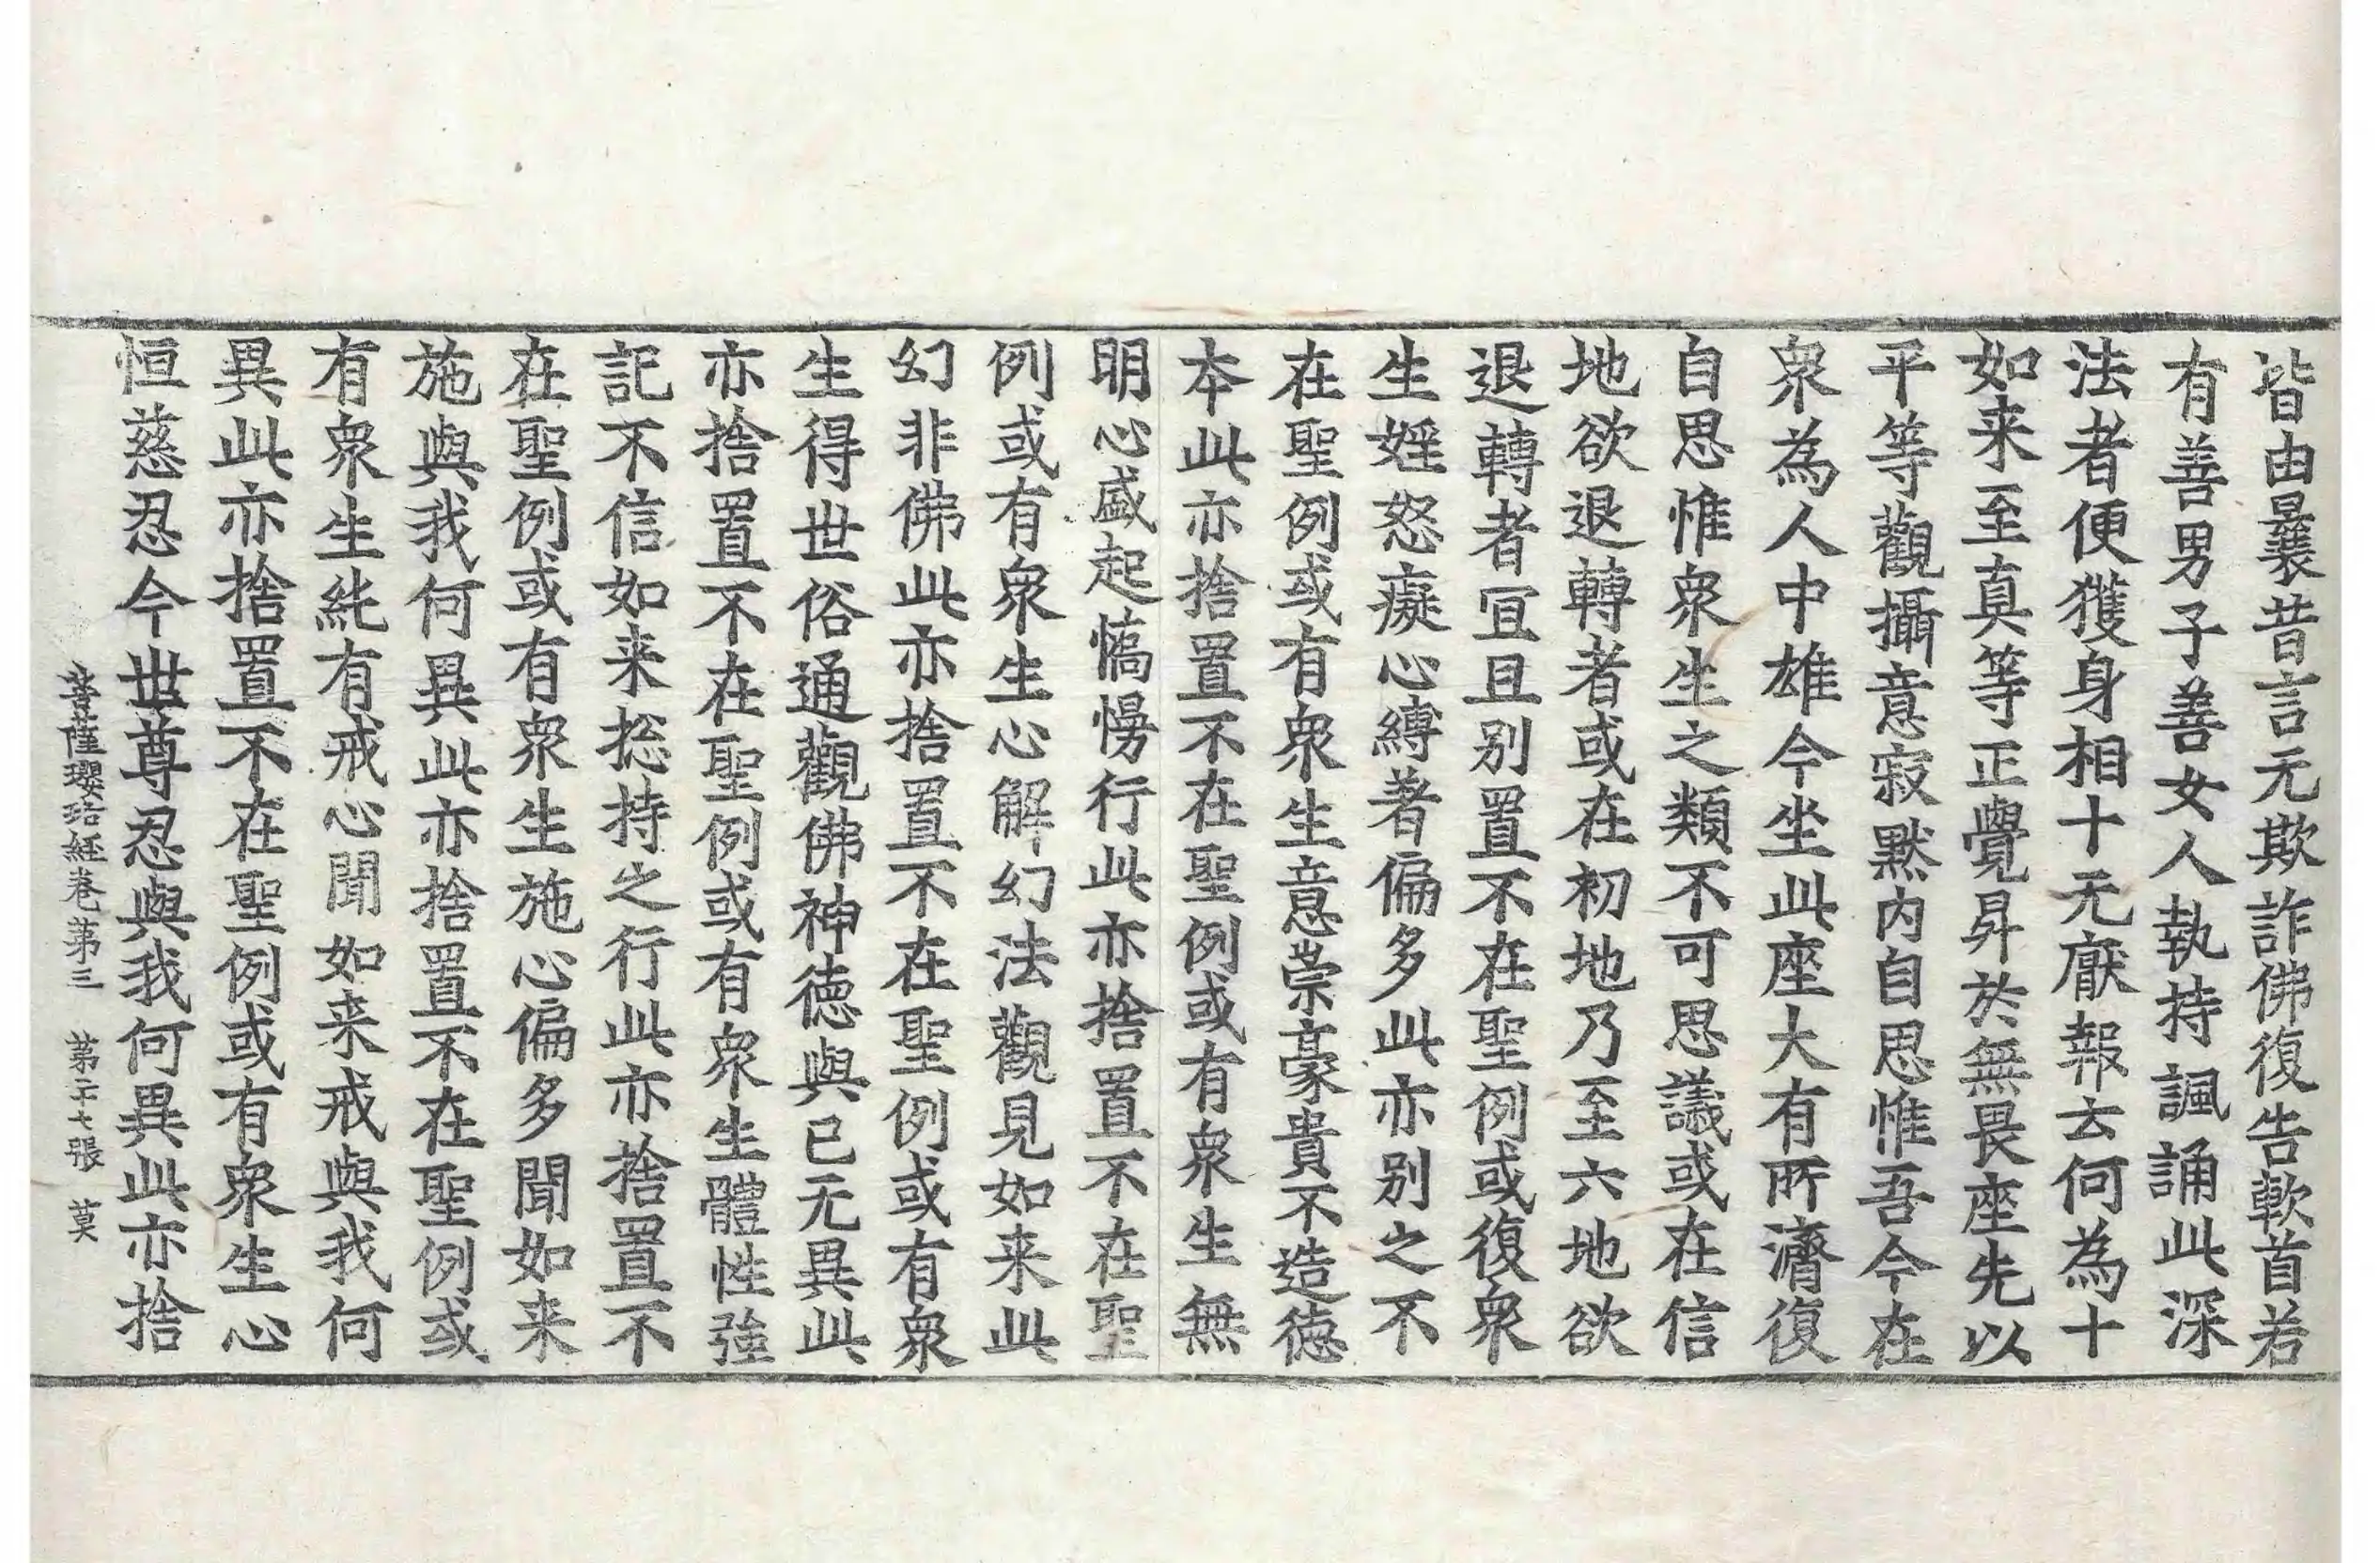 皆由曩昔言无欺詐佛復告軟首若
有善男子善女人執持諷誦此深
法者便獲身相十无厭報云何為十
如来至真等正覺昇於無畏座先以
平等觀攝意寂默内自思惟吾今在
衆為人中雄今坐此座大有所濟復
自思惟衆生之類不可思議或在信
地欲退轉者或在初地乃至六地欲
退轉者宜且别置不在聖例或復衆
生婬怒癡心縛著偏多此亦别之不
在聖例或有衆生意崇豪貴不造德
本此亦捨置不在聖例或有衆生無
明心盛起憍慢行此亦捨置不在聖
例或有衆生心解幻法觀見如来此
幻非佛此亦捨置不在聖例或有衆
生得世俗通觀佛神德與已无異此
亦捨置不在聖例或有衆生體性強
記不信如来捴持之行此亦捨置不
在聖例或有衆生施心偏多聞如来
施與我何異此亦捨置不在聖例或
有衆生純有戒心聞如来戒與我何
異此亦捨置不在聖例或有衆生心
恒慈忍今世尊忍與我何異此亦捨
菩薩瓔珞經卷第三　第二十七張　莫